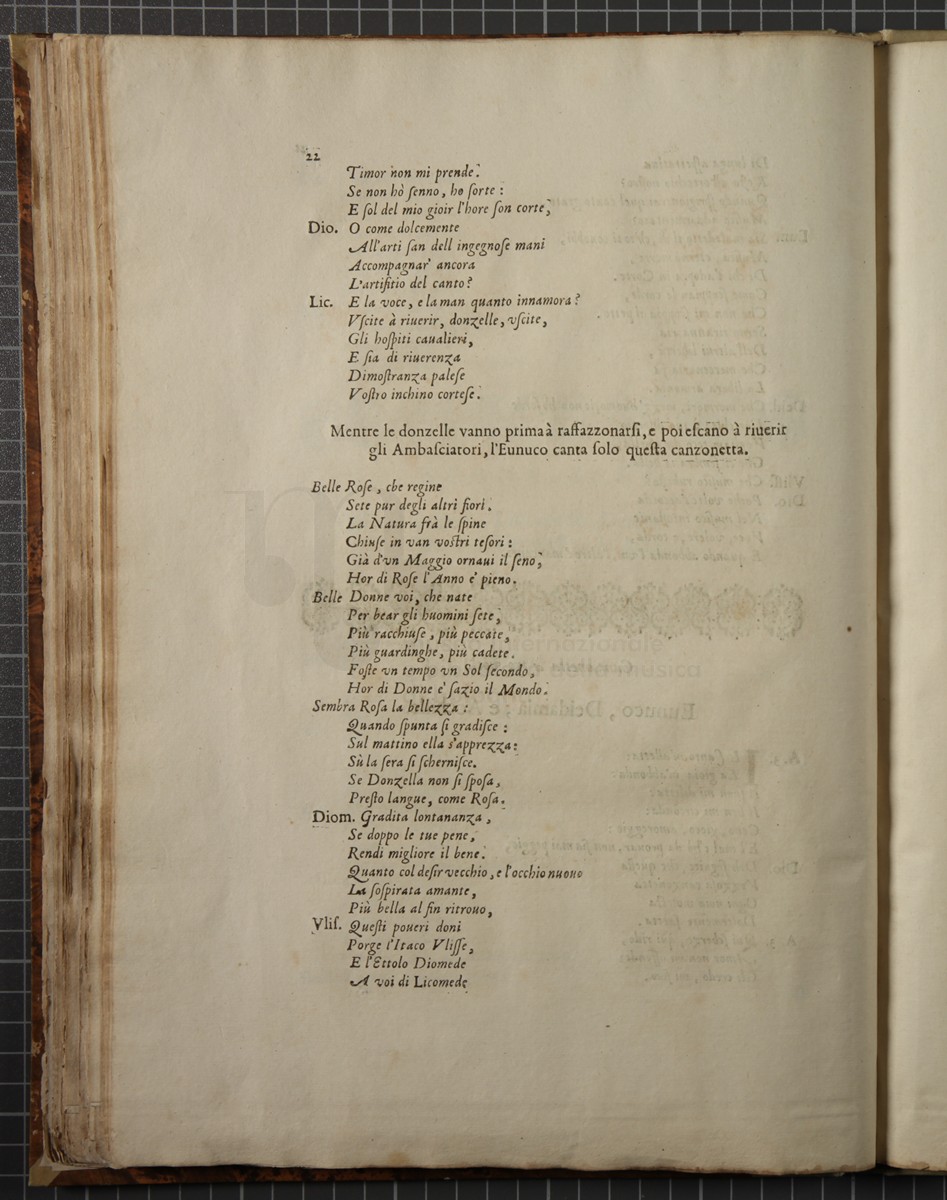 22
Timor non mi prende.
Se non hò ſenno, ho ſorte :
E ſol del mio gioir l'hore ſon corte,
Dio. O come dolcemente
All'arti ſan dell ingegnoſe mani
Accompagnar' ancora
L'artifitio del canto?
Lic. E la voce, e la man quanto innamora?
Vſcite à riuerir, donzelle, vſcite,
Gli hoſpiti caualieri,
E ſia di riuerenza
Dimoſtranza paleſe
Voſtro inchino corteſe.
Mentre le donzelle vanno prima à raffazzonarſi, e poi eſcano à riuerir
gli Ambaſciatori, l'Eunuco canta ſolo queſta canzonetta.
Belle Roſe, che regine
Sete pur degli altri fiori.
La Natura frà le ſpine
Chiuſe in van voſtri teſori :
Già d'vn Maggio ornaui il ſeno,
Hor di Roſe l'Anno e' pieno.
Belle Donne voi, che nate
Per bear gli huomini ſete,
Più racchiuſe, più peccate,
Più guardinghe, più cadete.
Foſte vn tempo vn Sol ſecondo,
Hor di Donne e' ſazio il Mondo.
Sembra Roſa la bellezza :
Quando ſpunta ſi gradiſce :
Sul mattino ella s'apprezza:
Sù la ſera ſi ſcherniſce.
Se Donzella non ſi ſpoſa,
Preſto langue, come Roſa.
Diom. Gradita lontananza,
Se doppo le tue pene,
Rendi migliore il bene.
Quanto col deſir vecchio, e l'occhio nuouo
La ſoſpirata amante,
Più bella al fin ritrouo,
Vliſ. Queſti poueri doni
Porge l'Itaco Vliſſe,
E l'Ettolo Diomede
A voi di Licomede